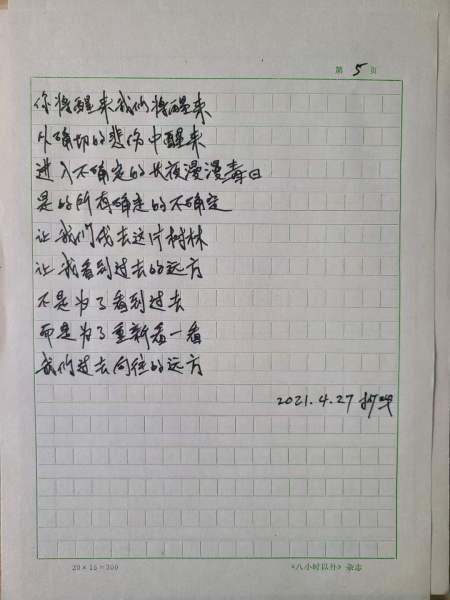 第 5 页
你将醒来我们将醒来
从确切的悲伤中醒来
进入不确定的长夜漫漫毒日
是的所有确定的不确定
让我们伐去这片树林
让我看到过去的远方
不是为了看到过去
而是为了重新看一看
我们过去向往的远方
2021.4.27
20×15=300
《八小时以外》杂志